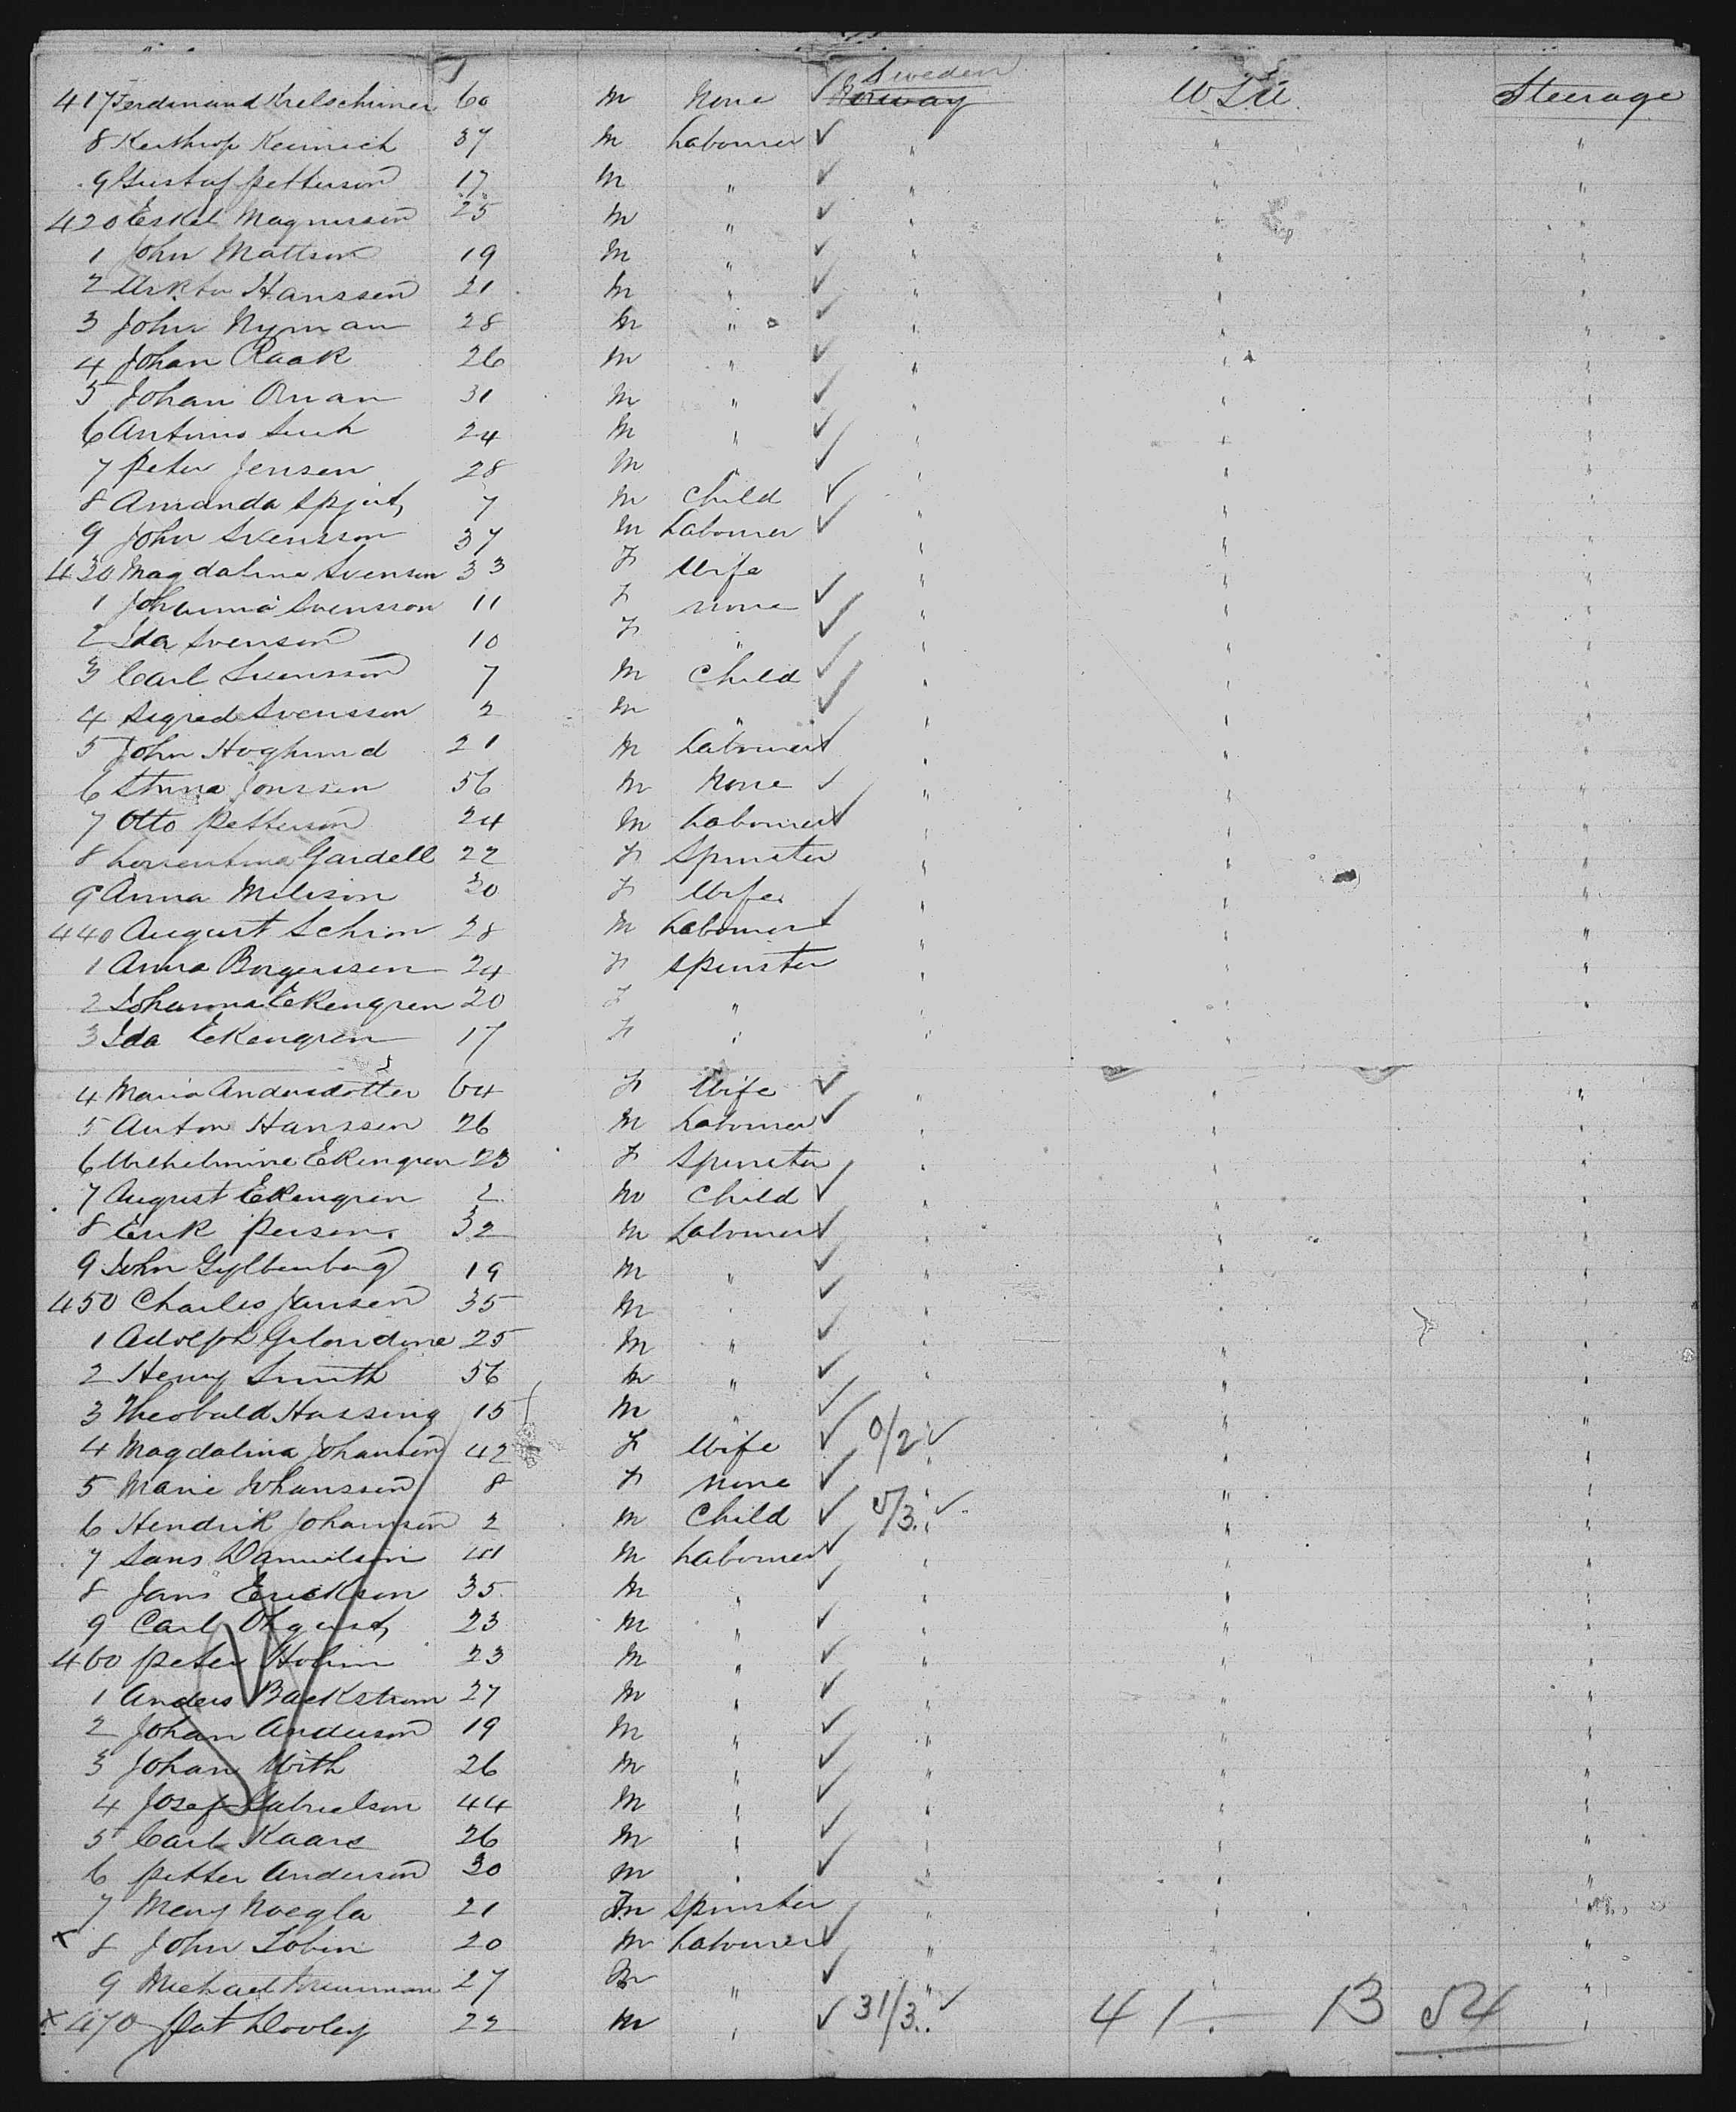 Sweden
417 Ferdinand Kretschmer 60 M None ✓ Norway U.S.A. Steerage
8 Heinrich 37 M Labourer ✓ " " "
9 Gustaf Petterson 17 M " ✓ " " "
420 Eskel Magnusson 25 M " ✓ " " "
1 John Mattson 19 M " ✓ " " "
2 Hanssen 21 M " ✓ " " "
3 John Nyman 28 M " ✓ " " "
4 Johan Raak 26 M " ✓ " " "
5 Johan Oman 31 M " ✓ " " "
6 Antonio 24 M " ✓ " " "
7 Peter Jensen 28 M " ✓ " " "
8 Amanda 7 M Child ✓ " " "
9 John Svensson 37 M Labourer ✓ " " "
430 Magdalina Svenson 33 F Wife " " "
1 Johanna Svensson 11 F none ✓ " " "
2 Ida Svenson 10 F " ✓ " " "
3 Carl Svensson 7 M Child ✓ " " "
4 Sigred Svensson 2 M " ✓ " " "
5 John Hoglund 21 M Labourer ✓ " " "
6 Stina Jonssen 56 M None ✓ " " "
7 Otto Petterson 24 M Labourer ✓ " " "
8 Gardell 22 F Spinster " " "
9 Anna Milison 30 F Wife " " "
440 August Schion 28 M Labourer ✓ " " "
1 Anna Borgenssen 24 F Spinster " " "
2 Johanna Ekengren 20 F " " " "
3 Ida Ekengren 17 F " " "
4 Maria Andersdotter 64 F Wife ✓ " " "
5 Anton Hanssen 26 M Labourer ✓ " " "
6 Wilhelmine Ekengren 23 F Spinster " " "
7 August Ekengren 2 M Child ✓ " " "
8 Erik Person 32 M Labourer ✓ " " "
9 John Gyllenberg 19 M " ✓ " " "
450 Charles Jansen 35 M " ✓ " " "
1 Adolph 25 M " ✓ " " "
2 Henry Smith 56 M " ✓ " " "
3 Theobald Hassing 15 M " ✓ " " "
4 Magdalina Johansen 42 F Wife ✓ 0/2 ✓ " "
5 Marie Johansson 8 F None ✓ " " "
6 Hendrik Johansson 2 M Child ✓ 5/3 ✓ " "
7 Danielson 41 M Labourer ✓ " " "
8 Jans Erickson 35 M " ✓ " " "
9 Carl 23 M " ✓ " " "
460 Peter Holm 23 M " ✓ " " "
1 Anders Backstrom 27 M " ✓ " " "
2 Johan Anderson 19 M " ✓ " " "
3 Johan With 26 M " ✓ " " "
4 Josef Gabrielson 44 M " ✓ " " "
5 Carl Kaars 26 M " ✓ " " "
6 Petter Anderson 30 M " ✓ " " "
7 Mary Naegla 21 F Spinster " " "
x 8 John Tobin 20 M Labourer ✓ " " "
9 Michael 27 M " ✓ " " "
x 470 Pat Dooley 22 M " ✓ 31/3 ✓ 41. 13 54 "